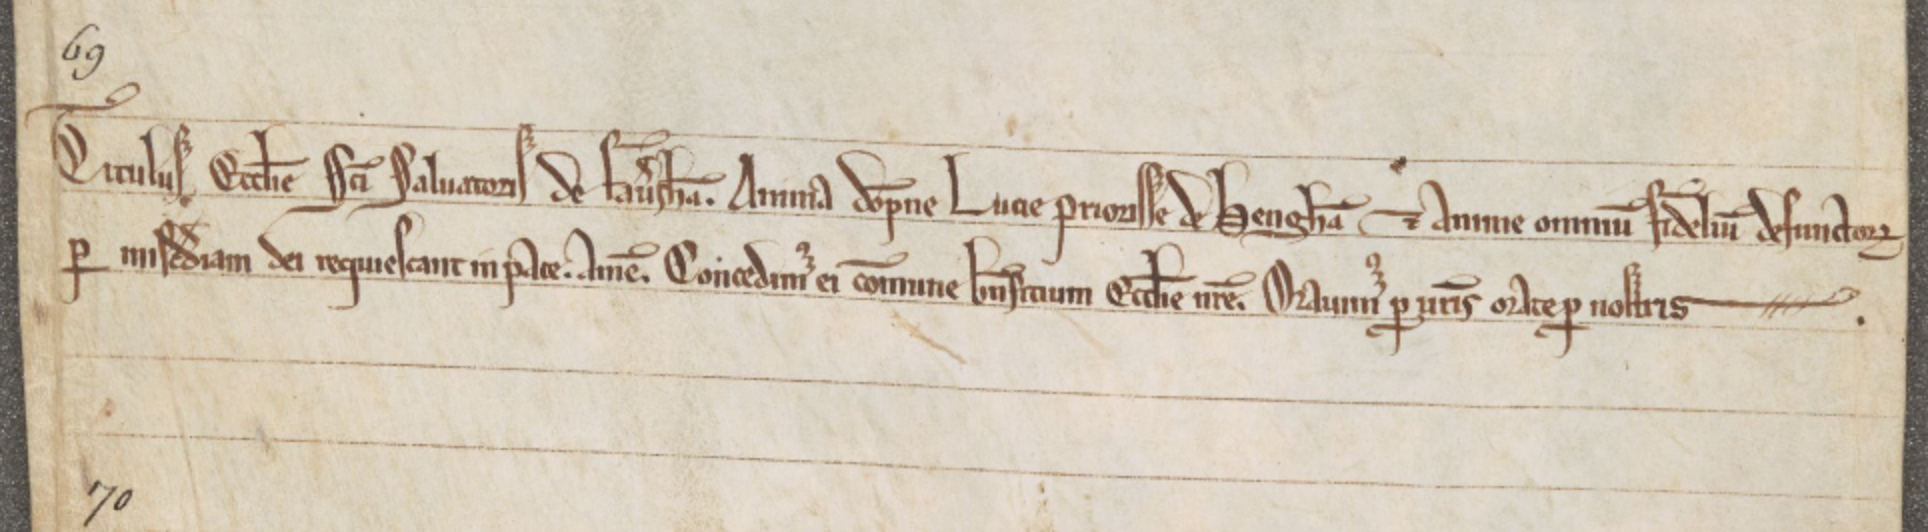 69
Titulus Eccl̄ie Sc̄i Saluatoris de fau̅sha̅. Anima dōpne Lucie priorisse de hengha̅ ⁊ anime omniu̅ fideliu̅ defunctoꝝ
ꝑ mis̅c̅diam dei requiescant in pace. ame̅. Concedimꝰ ei co̅mune bn̅ficium Eccl̄ie nr̅e. Orauimꝰ ꝓ ur̅is orate ꝓ nostris .
70